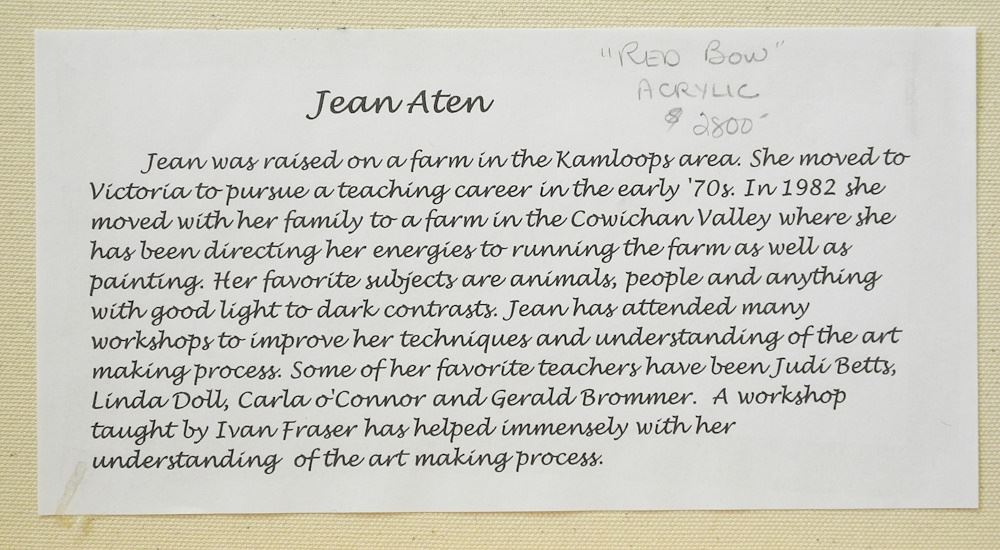 "RED BOW"
ACRYLIC
$2800-
Jean Aten
Jean was raised on a farm in the Kamloops area. She moved to
Victoria to pursue a teaching career in the early '70s. In 1982 she
moved with her family to a farm in the Cowichan Valley where she
has been directing her energies to running the farm as well as
painting. Her favorite subjects are animals, people and anything
with good light to dark contrasts. Jean has attended many
workshops to improve her techniques and understanding of the art
making process. Some of her favorite teachers have been Judi Betts,
Linda Doll, Carla o'Connor and Gerald Brommer. A workshop
taught by Ivan Fraser has helped immensely with her
understanding of the art making process.